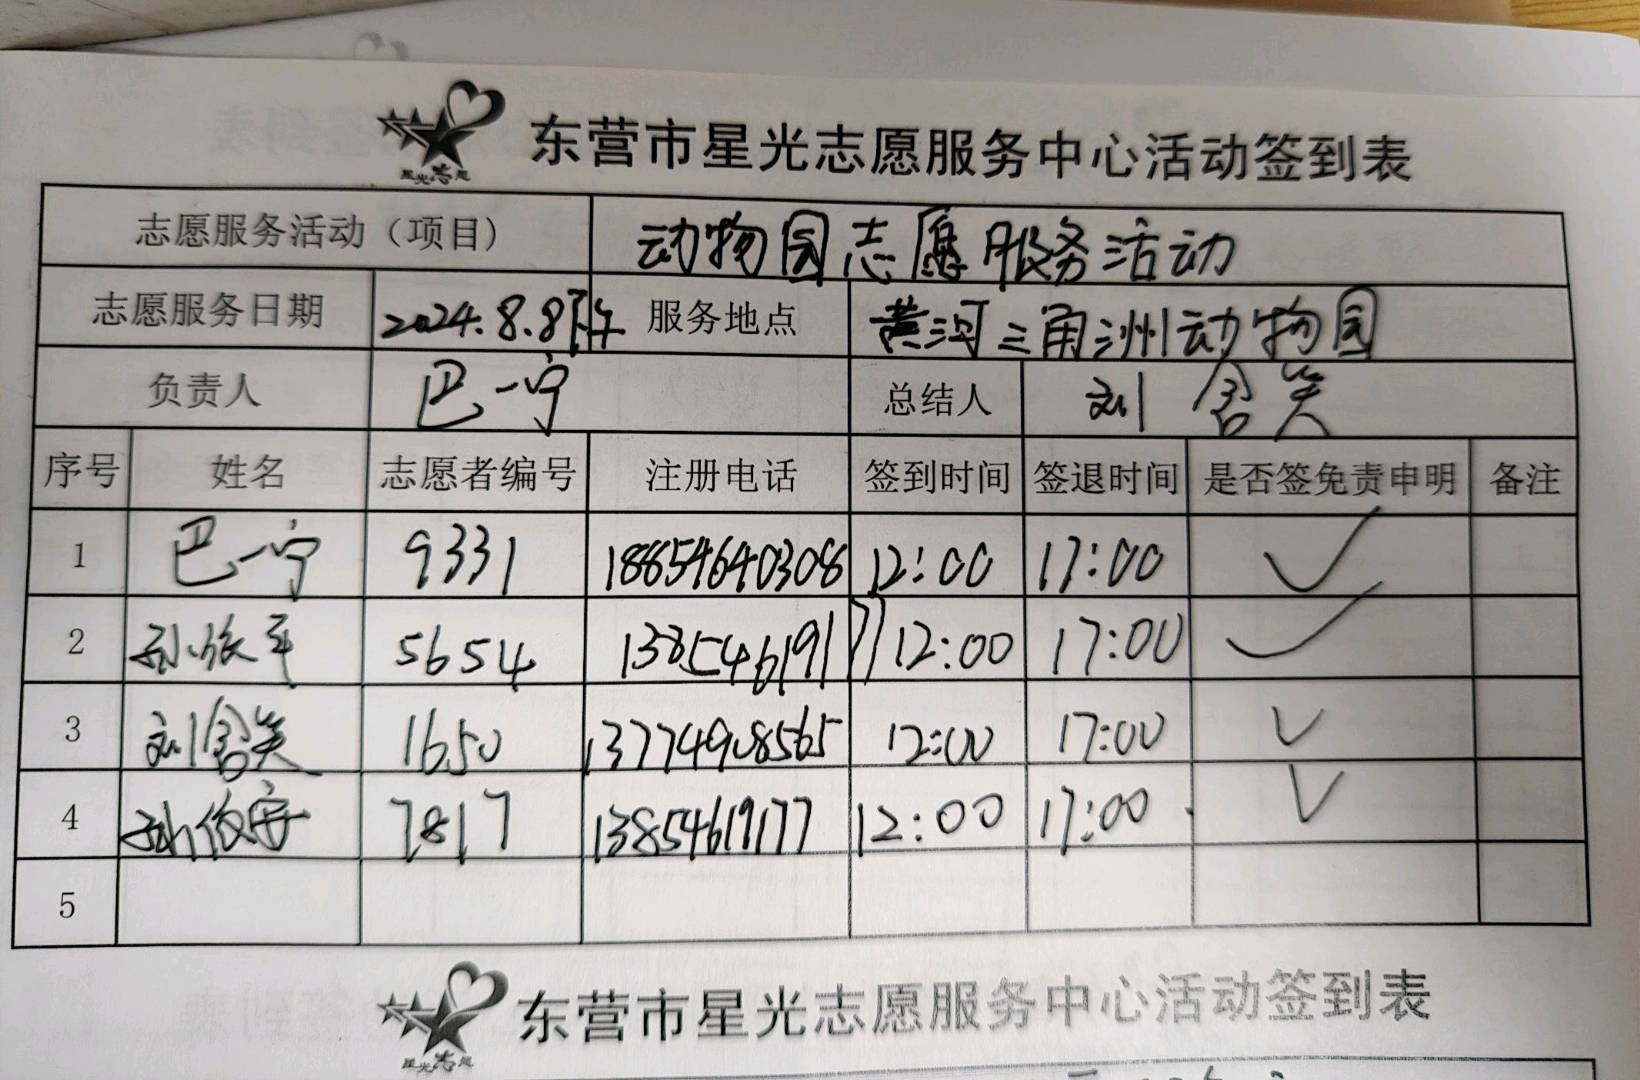 星光志愿
东营市星光志愿服务中心活动签到表
志愿服务活动（项目） 动物园志愿服务活动
志愿服务日期 2024.8.8下午 服务地点 黄河三角洲动物园
负责人 巴一宁 总结人 刘含笑
序号 姓名 志愿者编号 注册电话 签到时间 签退时间 是否签免责申明 备注
1 巴一宁 9331 18854640308 12:00 17:00 ✓
2 5654 13854619177 12:00 17:00 ✓
3 刘含笑 1650 13774908565 12:00 17:00 ✓
4 7817 13854619177 12:00 17:00 ✓
5
星光志愿
东营市星光志愿服务中心活动签到表